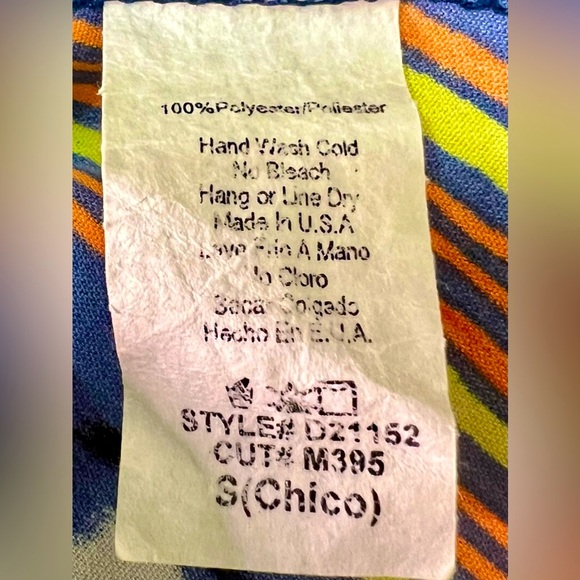 100%Polyester/Poliester
Hand Wash Cold
No Bleach
Hang or Line Dry
Made In U.S.A
Lave Frio A Mano
No Cloro
Secar Colgado
Hecho En E.U.A.
STYLE# D21152
CUT# M395
S(Chico)